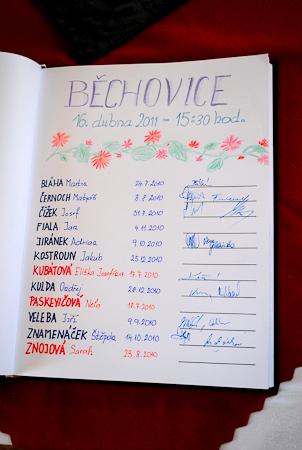 BĚCHOVICE
16. dubna 2011 - 15:30 hod.
BLÁHA Martin 24.7.2010
ČERNOCH Matyáš 8.8.2010
ČÍŽEK Josef 31.7.2010
FIALA Jan 4.11.2010
JIRÁNEK Adrian 9.10.2010
KOSTROUN Jakub 25.12.2010
KUBÁTOVÁ Eliška Josefína 17.7.2010
KULDA Ondřej 28.12.2010
PASKEVIČOVÁ Nela 18.7.2010
VELEBA Jiří 9.9.2010
ZNAMENÁČEK Štěpán 14.10.2010
ZNOJOVÁ Sarah 23.8.2010